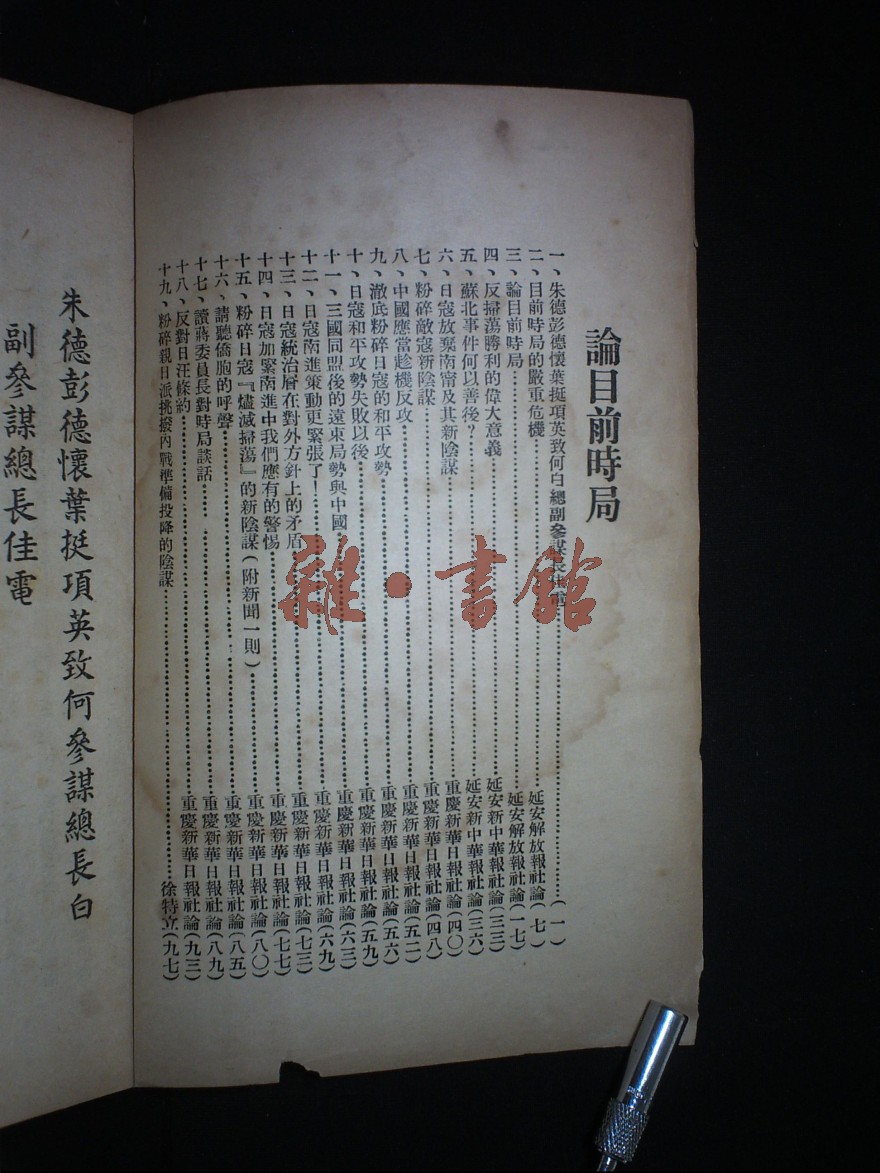 論目前時局
一、朱德彭德懷葉挺項英致何白總副參謀長佳電……(一)
二、目前時局的嚴重危機……延安解放報社論(七)
三、論目前時局……延安解放報社論(一七)
四、反掃蕩勝利的偉大意義……延安新中華報社論(三三)
五、蘇北事件何以善後?……延安新中華報社論(三六)
六、日寇放棄南甯及其新陰謀……重慶新華日報社論(四〇)
七、粉碎敵寇新陰謀……重慶新華日報社論(四八)
八、中國應當趁機反攻……重慶新華日報社論(五二)
九、澈底粉碎日寇的和平攻勢……重慶新華日報社論(五六)
十、日寇和平攻勢失敗以後……重慶新華日報社論(五九)
十一、三國同盟後的遠東局勢與中國……重慶新華日報社論(六三)
十二、日寇南進策動更緊張了!……重慶新華日報社論(六九)
十三、日寇統治層在對外方針上的矛盾……重慶新華日報社論(七三)
十四、日寇加緊南進中我們應有的警惕……重慶新華日報社論(七七)
十五、粉碎日寇『燼滅掃蕩』的新陰謀(附新聞一則)……重慶新華日報社論(八〇)
十六、請聽僑胞的呼聲……重慶新華日報社論(八五)
十七、讀蔣委員長對時局談話……重慶新華日報社論(八九)
十八、反對日汪條約……重慶新華日報社論(九三)
十九、粉碎親日派挑撥內戰準備投降的陰謀……徐特立(九七)
朱德彭德懷葉挺項英致何參謀總長白
副參謀總長佳電
雜·書館